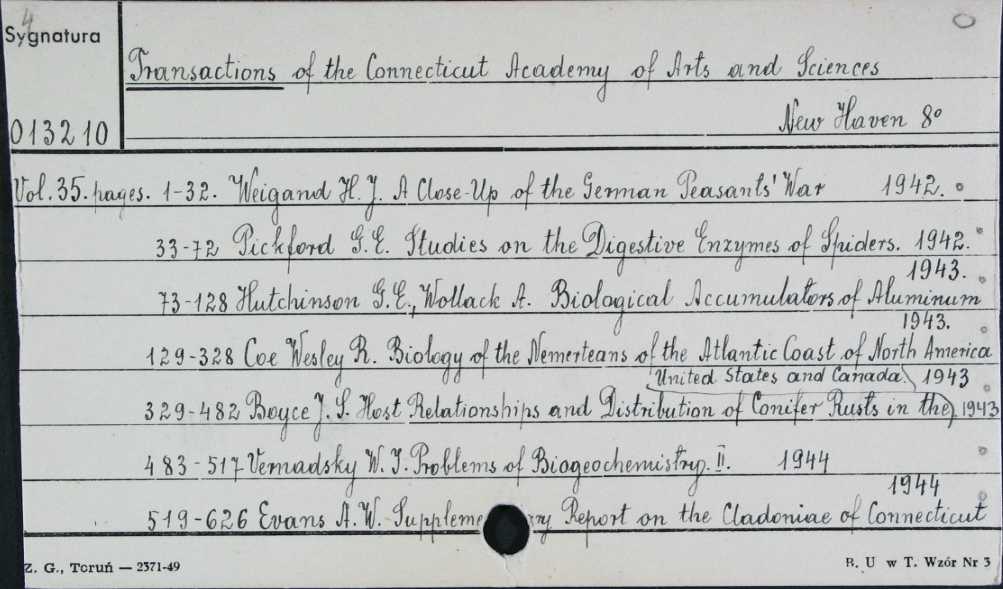 4
Sygnatura
013210
Transactions of the Connecticut Academy of Arts and Sciences
New Haven 8°
Vol. 35. pages. 1-32. Weigand H. J. A Close-Up of the German Peasants' War 1942.
33-72 Pickford G.E. Studies on the Digestive Enzymes of Spiders. 1942.
1943.
73-128 Hutchinson G.E., Wollack A. Biological Accumulators of Aluminum
1943.
129-328 Coe Wesley R. Biology of the Nemerteans of the Atlantic Coast of North America
United States and Canada. 1943
329-482 Boyce J. S. Host Relationships and Distribution of Conifer Rusts in the 1943
483-517 Vernadsky W. I. Problems of Biogeochemistry. II. 1944
1944
519-626 Evans A. W. Report on the Cladoniae of Connecticut
Z. G., Toruń — 2371-49
B. U w T. Wzór Nr 3